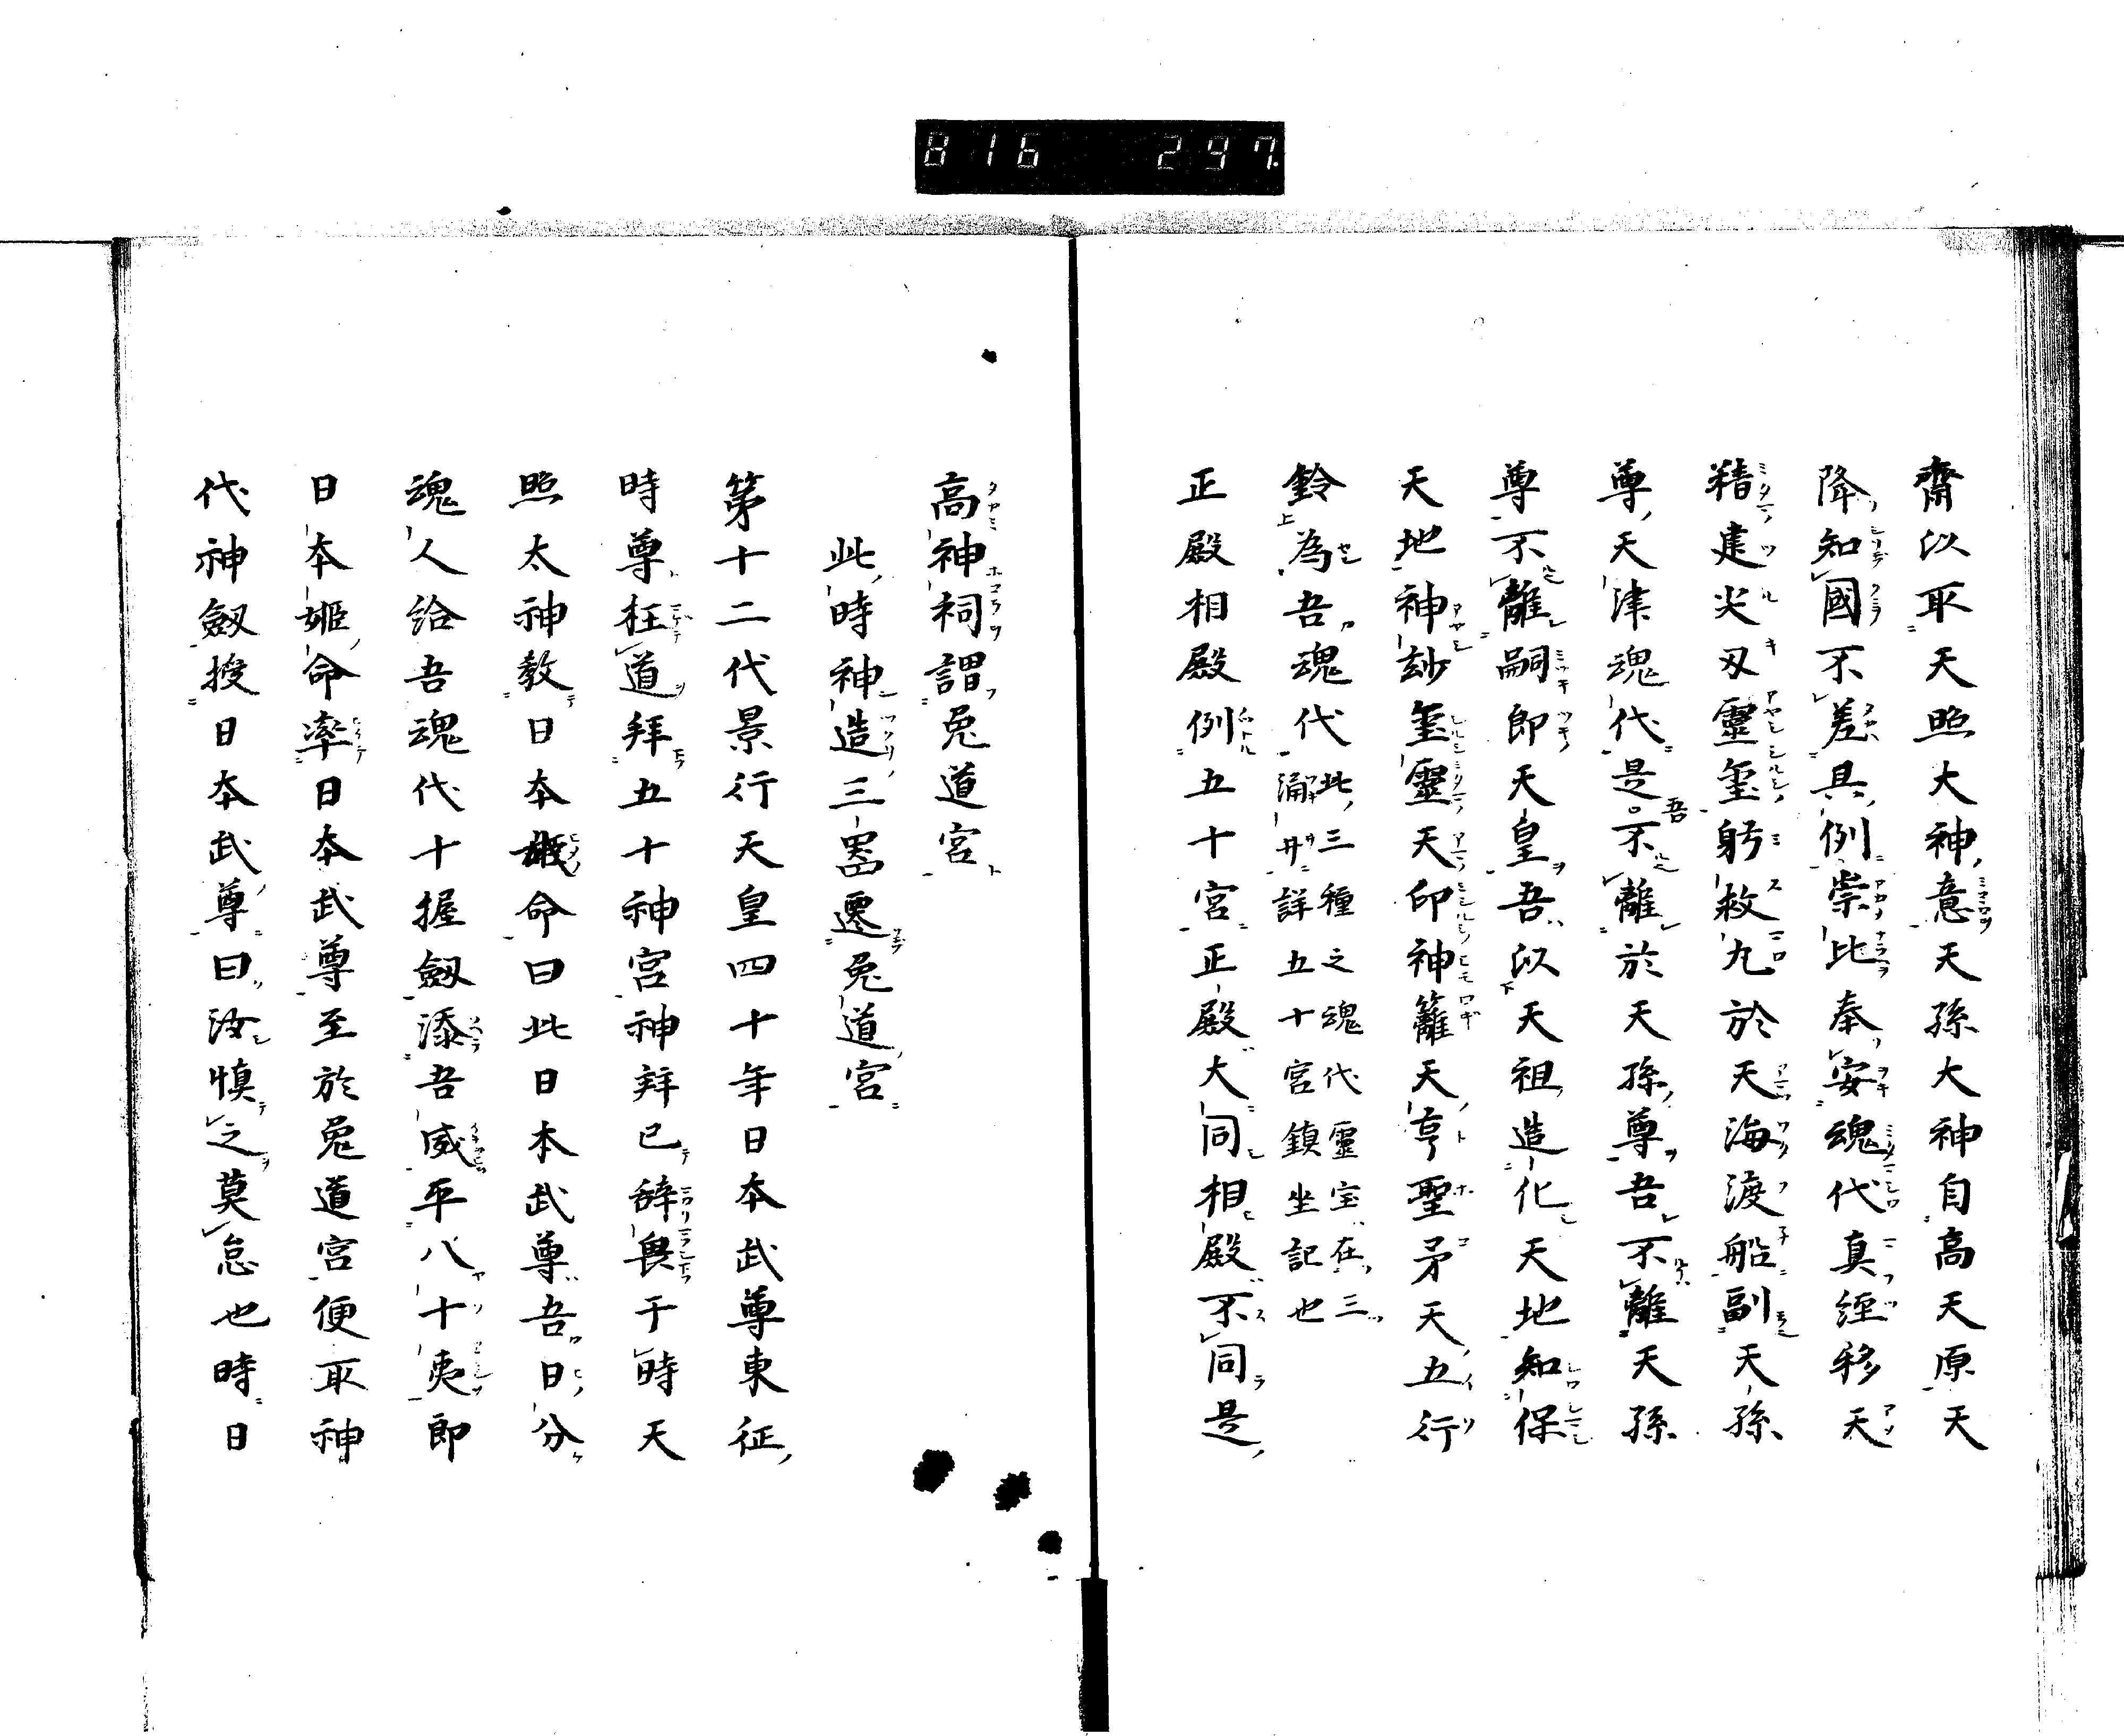 816 297
齋以取天照大神意天孫大神自高天原天
降知國不差具例崇比奉安魂代真經移天
精建火刄靈璽躬救九於天海渡船副天孫
尊天津魂代是吾不離於天孫尊吾不離天孫
尊不離嗣即天皇吾以天祖造化天地知保
天地神玅璽靈天印神籬天亨聖矛天五行
鈴為吾魂代此三種之魂代靈宝在三
涌井詳五十宮鎮坐記也
正殿相殿例五十宮正殿大同相殿不同是
高神祠謂兎道宮
此時神造三噐遷兎道宮
第十二代景行天皇四十年日本武尊東征
時尊枉道拜五十神宮神拜已辞輿于時天
照太神教日本姬命曰此日本武尊吾日分
魂人給吾魂代十握劔添吾威平八十夷即
日本姬命率日本武尊至於兎道宮便取神
代神劔授日本武尊曰汝慎之莫怠也時日